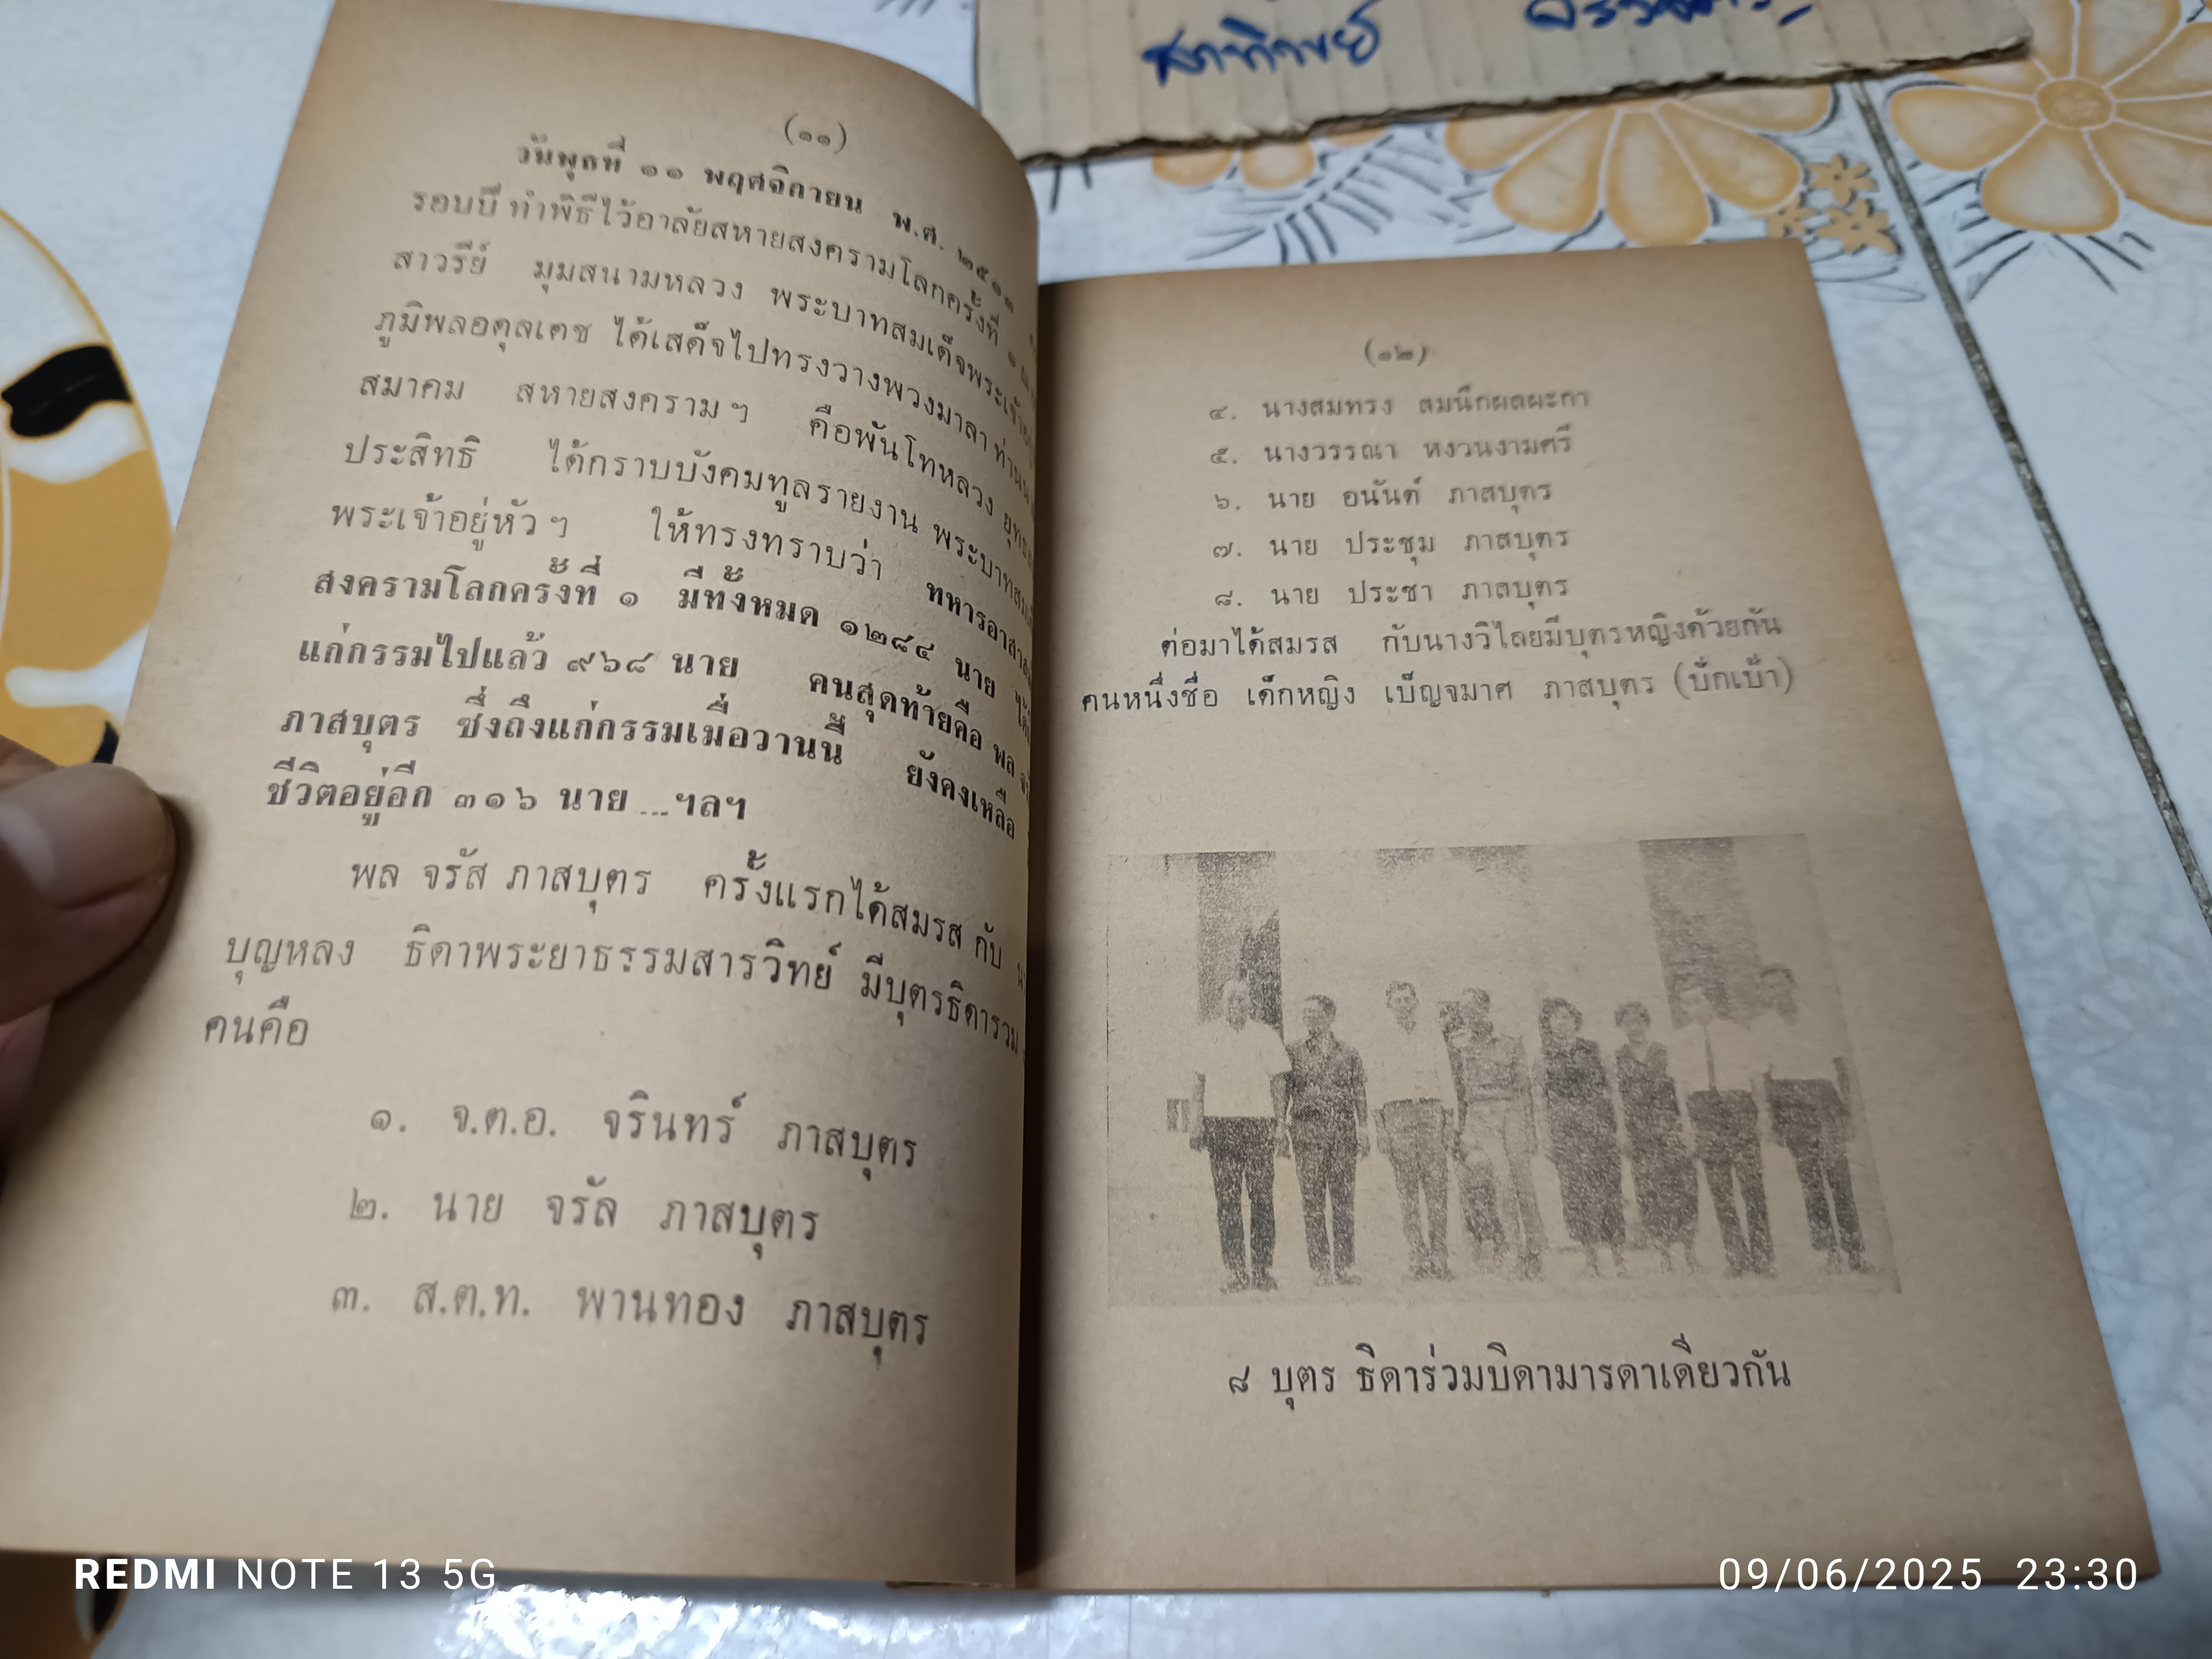 สภาทิพย์
(๑๑)
วันพุธที่ ๑๑ พฤศจิกายน พ.ศ. ๒๕๑๑
รอบปี ทำพิธีไว้อาลัยสหายสงครามโลกครั้งที่ ๑
สาวรีย์ มุมสนามหลวง พระบาทสมเด็จพระเจ้าอยู่
ภูมิพลอดุลเดช ได้เสด็จไปทรงวางพวงมาลา ท่าน
สมาคม สหายสงครามฯ คือพันโทหลวง ยุทธ
ประสิทธิ ได้กราบบังคมทูลรายงาน พระบาทสมเด็จ
พระเจ้าอยู่หัวฯ ให้ทรงทราบว่า ทหารอาสา
สงครามโลกครั้งที่ ๑ มีทั้งหมด ๑๒๘๔ นาย ได้
แก่กรรมไปแล้ว ๙๖๘ นาย คนสุดท้ายคือ พล
ภาสบุตร ซึ่งถึงแก่กรรมเมื่อวานนี้ ยังคงเหลือ
ชีวิตอยู่อีก ๓๑๖ นาย ...ฯลฯ
พล จรัส ภาสบุตร ครั้งแรกได้สมรส กับ
บุญหลง ธิดาพระยาธรรมสารวิทย์ มีบุตรธิดารวม
คนคือ
๑. จ.ต.อ. จรินทร์ ภาสบุตร
๒. นาย จรัล ภาสบุตร
๓. ส.ต.ท. พานทอง ภาสบุตร
(๑๒)
๔. นางสมทรง สมนึกผลผะกา
๕. นางวรรณา หงวนงามศรี
๖. นาย อนันต์ ภาสบุตร
๗. นาย ประชุม ภาสบุตร
๘. นาย ประชา ภาสบุตร
ต่อมาได้สมรส กับนางวิไลยมีบุตรหญิงด้วยกัน
คนหนึ่งชื่อ เด็กหญิง เบ็ญจมาศ ภาสบุตร (บั๊กเบ้า)
๘ บุตร ธิดาร่วมบิดามารดาเดียวกัน
REDMI NOTE 13 5G
09/06/2025 23:30